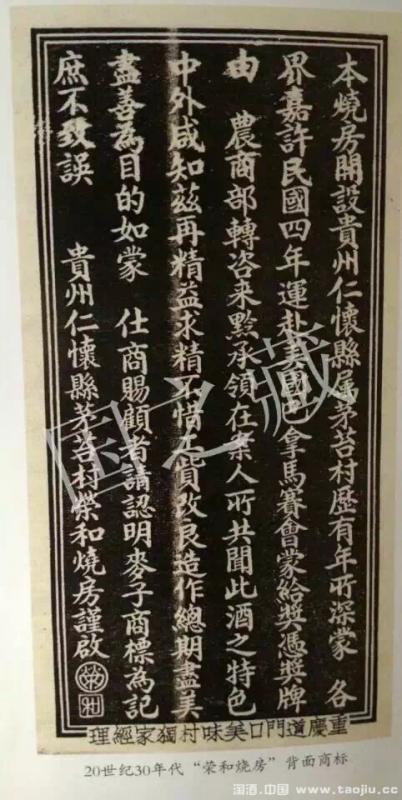 本燒房開設貴州仁懷縣属茅苔村歷有年所深蒙 各
界嘉許民國四年運赴美國巴拿馬賽會蒙給獎憑獎牌
由 農商部轉咨来黔承領在案人所共聞此酒之特色
中外咸知茲再精益求精不惜工貲改良造作總期盡美
盡善為目的如蒙 仕商賜顧者請認明麥子商標為記
庶不致誤 貴州仁懷縣茅苔村榮和燒房謹啟
重慶道門口美味村獨家經理
20世纪30年代“荣和烧房”背面商标
国之藏
国酒.中国 www.taojiu.cc